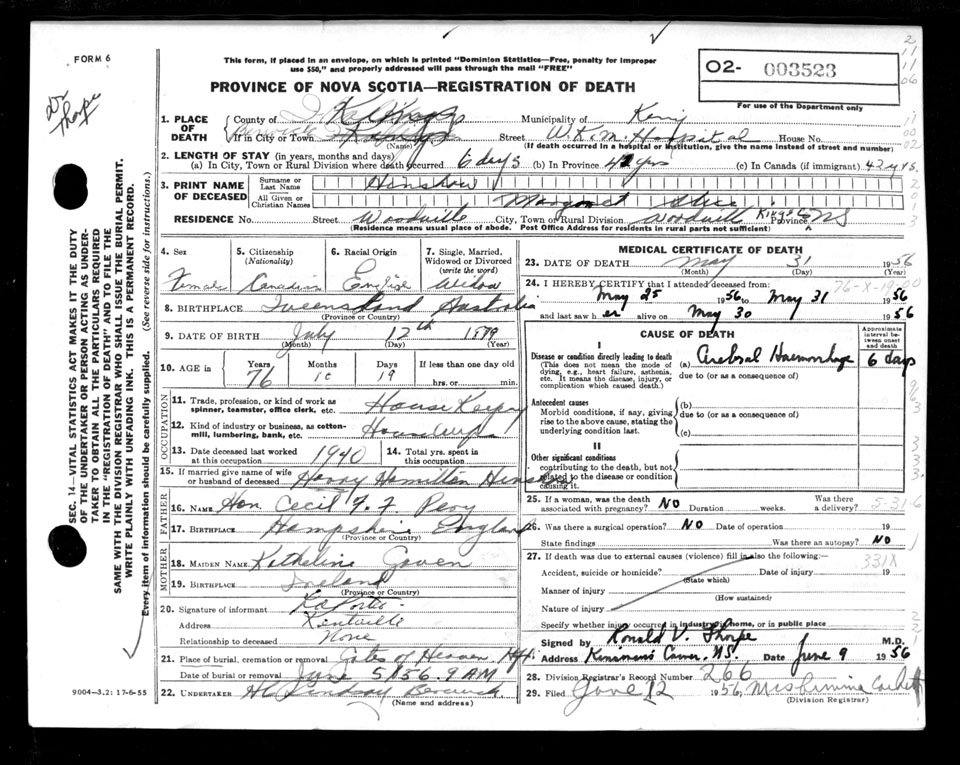 FORM 6
This form, if placed in an envelope, on which is printed "Dominion Statistics—Free, penalty for improper
use $50," and properly addressed will pass through the mail "FREE"
O2- 003523
For use of the Department only
PROVINCE OF NOVA SCOTIA—REGISTRATION OF DEATH
Dr Thorpe
1. PLACE OF DEATH County of Kings Municipality of Kings
If in City or Town Berwick (Name) Street W.K.M. Hospital House No.
(If death occurred in a hospital or institution, give the name instead of street and number)
2. LENGTH OF STAY (in years, months and days)
(a) In City, Town or Rural Division where death occurred 6 days (b) In Province 42 yrs (c) In Canada (if immigrant) 42 yrs.
3. PRINT NAME OF DECEASED Surname or Last Name Hinshaw
All Given or Christian Names Margaret Alice
RESIDENCE No. Street Woodville City, Town or Rural Division Woodville Kings Co Province NS
(Residence means usual place of abode. Post Office Address for residents in rural parts not sufficient)
4. Sex Female
5. Citizenship (Nationality) Canadian
6. Racial Origin English
7. Single, Married, Widowed or Divorced (write the word) Widow
8. BIRTHPLACE Queensland Australia
(Province or Country)
9. DATE OF BIRTH July 12th 1879
(Month) (Day) (Year)
10. AGE in Years 76 Months 10 Days 19 If less than one day old hrs. or min.
OCCUPATION
11. Trade, profession, or kind of work as spinner, teamster, office clerk, etc. House Keeping
12. Kind of industry or business, as cotton-mill, lumbering, bank, etc. Housewife
13. Date deceased last worked at this occupation 1940 14. Total yrs. spent in this occupation
15. If married give name of wife or husband of deceased Harry Hamilton Hinshaw
FATHER
16. NAME Hon. Cecil F. F.
17. BIRTHPLACE Hampshire England
(Province or Country)
MOTHER
18. MAIDEN NAME
19. BIRTHPLACE Ireland
(Province or Country)
20. Signature of informant
Address Kentville
Relationship to deceased None
21. Place of burial, cremation or removal Gates of Heaven
Date of burial or removal June 5/56. 9 AM
22. UNDERTAKER Lindsay Berwick
(Name and address)
9004—3.2: 17-6-55
SEC. 14—VITAL STATISTICS ACT MAKES IT THE DUTY
OF THE UNDERTAKER OR PERSON ACTING AS UNDER-
TAKER TO OBTAIN ALL THE PARTICULARS REQUIRED
IN THE "REGISTRATION OF DEATH" AND TO FILE THE
SAME WITH THE DIVISION REGISTRAR WHO SHALL ISSUE THE BURIAL PERMIT.
WRITE PLAINLY WITH UNFADING INK. THIS IS A PERMANENT RECORD.
Every item of information should be carefully supplied. (See reverse side for instructions.)
MEDICAL CERTIFICATE OF DEATH
23. DATE OF DEATH May 31 1956
(Month) (Day) (Year)
24. I HEREBY CERTIFY that I attended deceased from:
May 25 1956 to May 31 1956
and last saw her alive on May 30 1956
CAUSE OF DEATH
Approximate interval between onset and death
I
Disease or condition directly leading to death (a) Cerebral Haemorrhage 6 days
(This does not mean the mode of dying, e.g., heart failure, asthenia, etc. It means the disease, injury, or complication which caused death.)
due to (or as a consequence of)
Antecedent causes (b)
Morbid conditions, if any, giving rise to the above cause, stating the underlying condition last.
due to (or as a consequence of)
(c)
II
Other significant conditions
contributing to the death, but not related to the disease or condition causing it.
25. If a woman, was the death associated with pregnancy? NO Duration weeks. Was there a delivery?
26. Was there a surgical operation? NO Date of operation 19
State findings Was there an autopsy? NO
27. If death was due to external causes (violence) fill in also the following:— 331X
Accident, suicide or homicide? (State which) Date of injury 19
Manner of injury
(How sustained)
Nature of injury
Specify whether injury occurred in industry, in home, or in public place
Signed by Ronald V. Thorpe M.D.
Address NS. Date June 9 1956
28. Division Registrar's Record Number 266
29. Filed June 12 1956,
(Division Registrar)